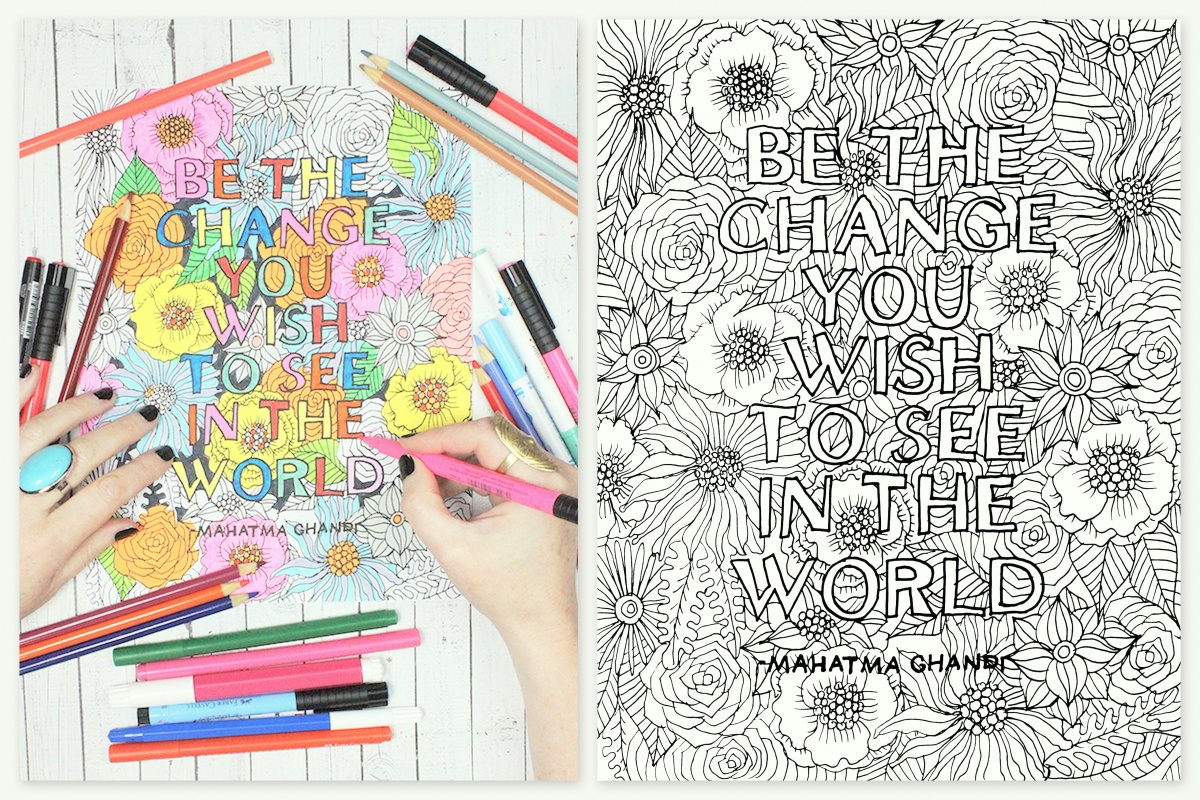 BE THE
CHANGE
YOU
WISH
TO SEE
IN THE
WORLD
-MAHATMA GHANDI
FABER-CASTELL
BE THE
CHANGE
YOU
WISH
TO SEE
IN THE
WORLD
-MAHATMA GHANDI